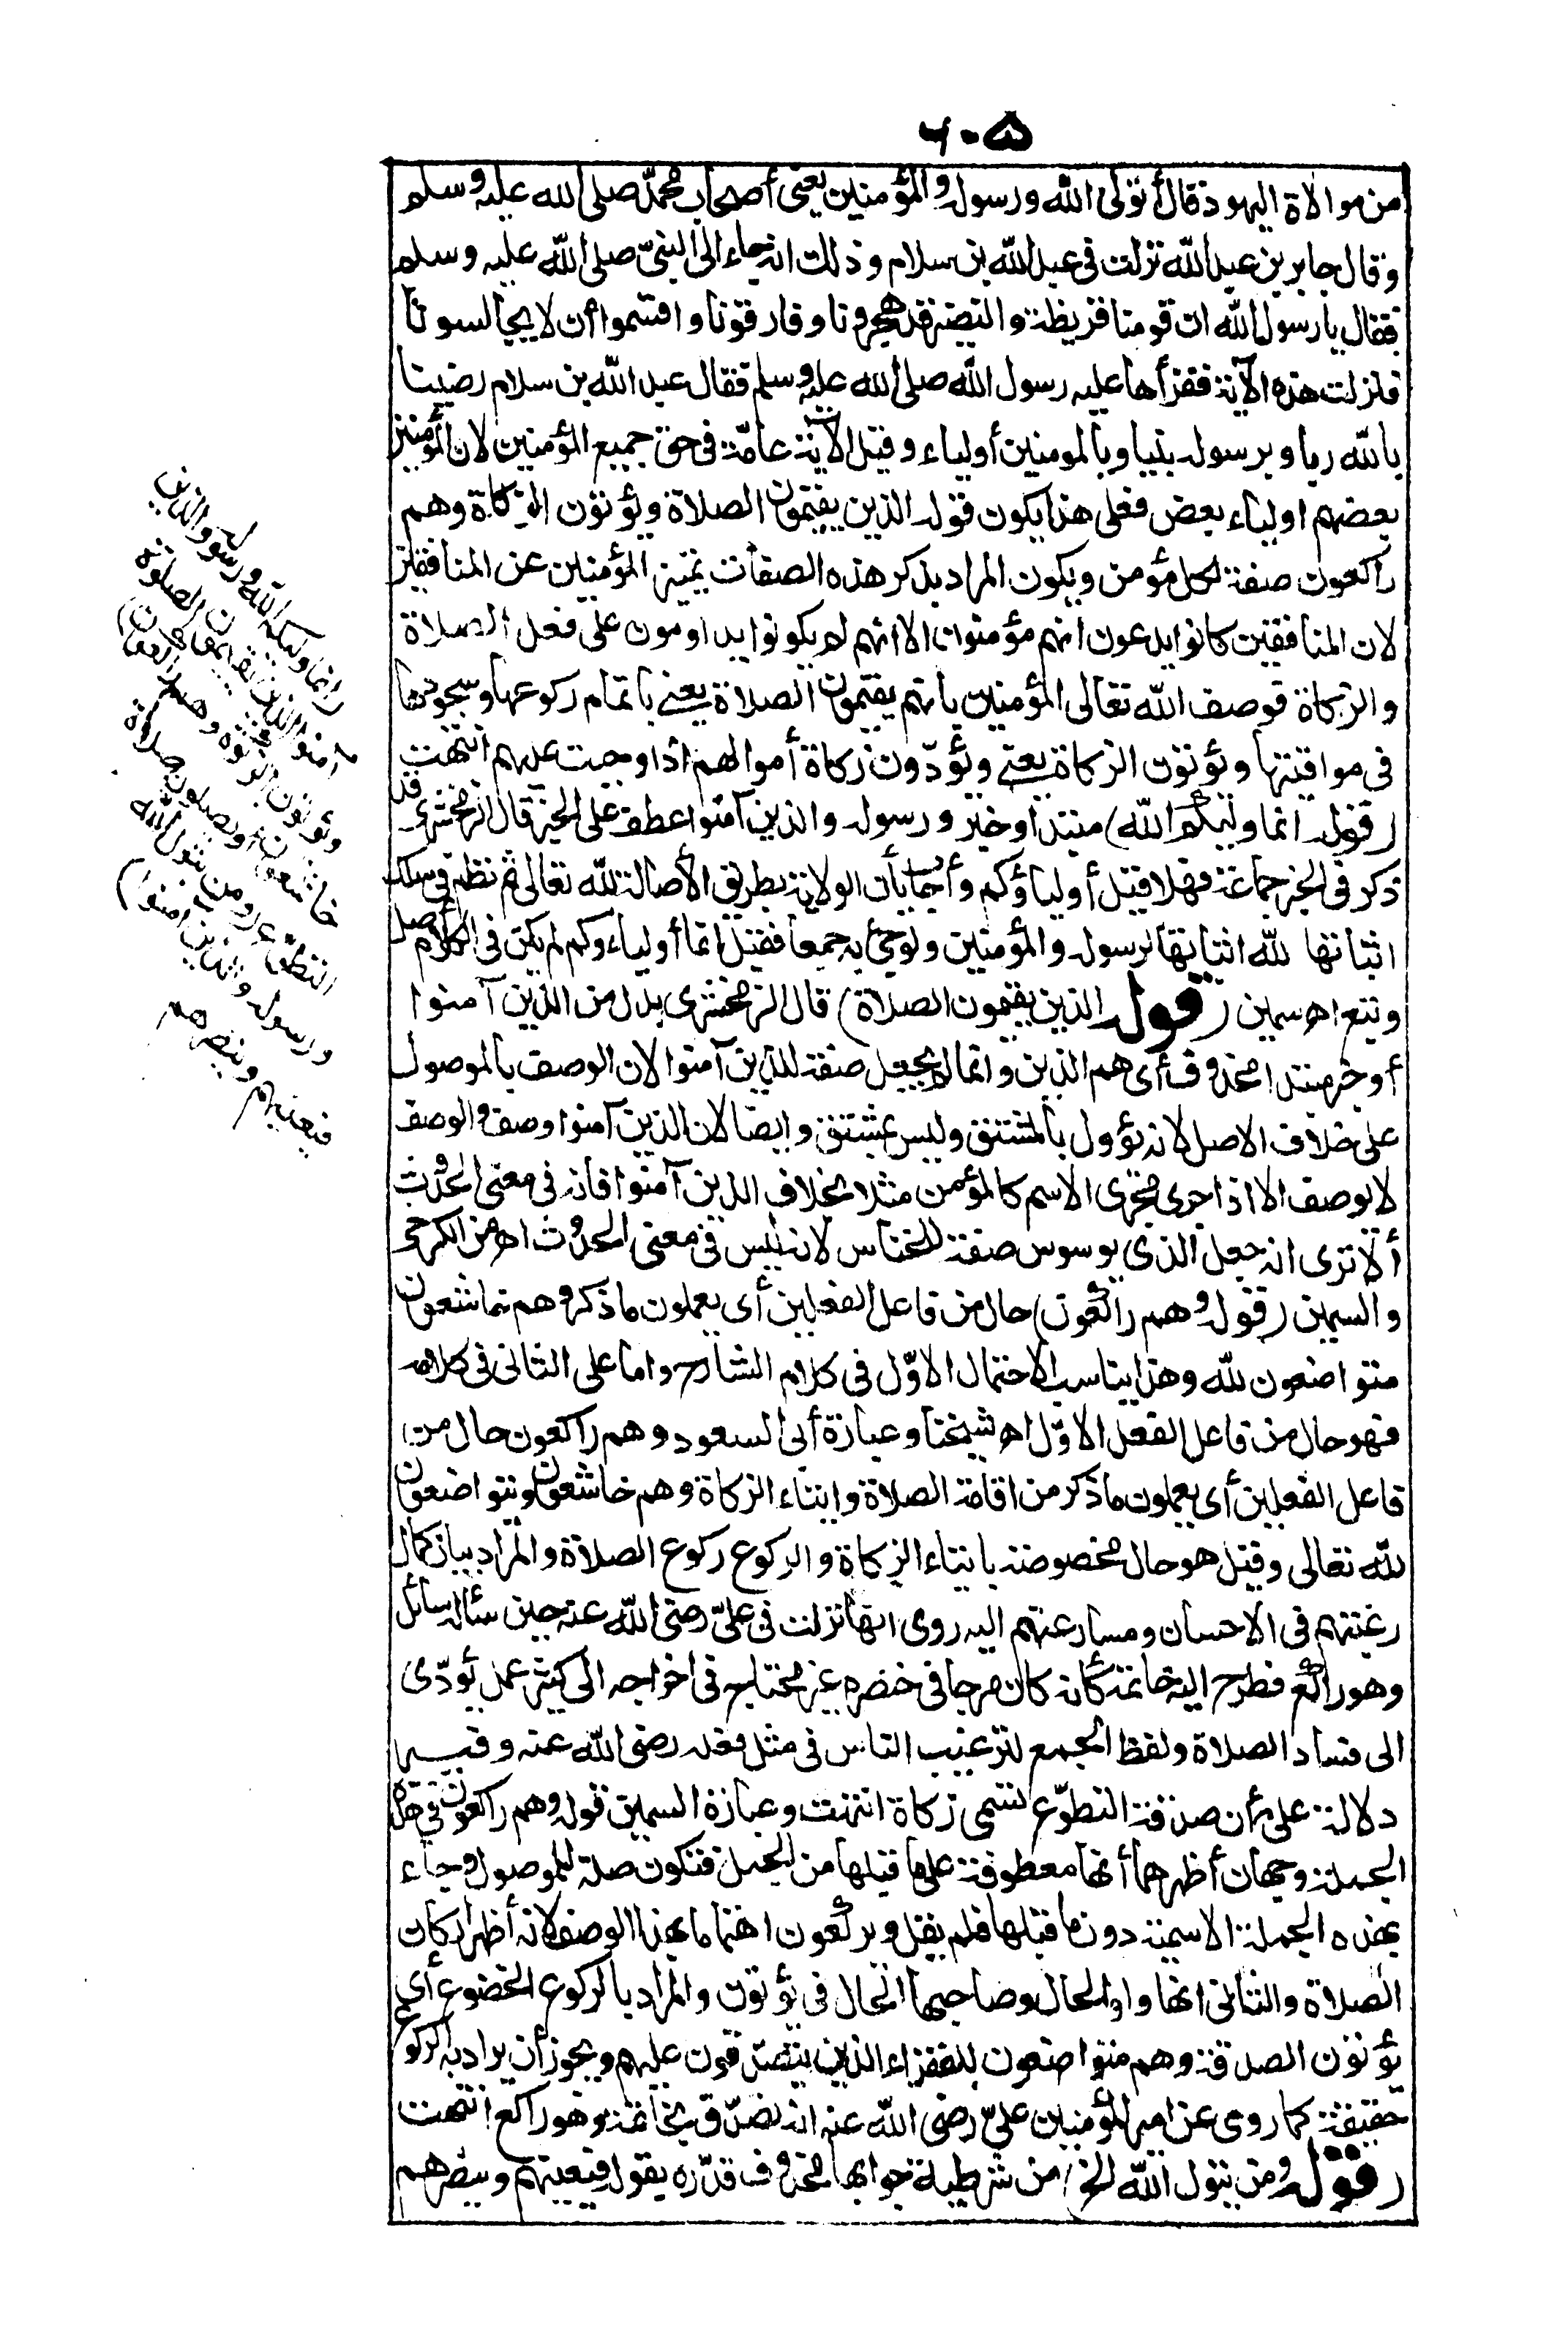 ٦٠٥
من موالاة اليهود قال أتولى الله ورسوله والمؤمنين يعنى أصحاب محمد صلى الله عليه وسلم
وقال جابر بن عبد الله نزلت فى عبد الله بن سلام وذلك انه جاء الى النبىّ صلى الله عليه وسلم
فقال يا رسول الله ان قومنا قريظة والنضير قد هجرونا وفارقونا وأقسموا أن لا يجالسونا
فنزلت هذه الآية فقرأها عليه رسول الله صلى الله عليه وسلم فقال عبد الله بن سلام رضينا
بالله ربا وبرسوله نبيا وبالمومنين أولياء وقيل الآية عامّة فى حق جميع المؤمنين لان المؤمنين
بعضهم اولياء بعض فعلى هذا يكون قوله الذين يقيمون الصلاة ويؤتون الزكاة وهم
راكعون صفة لكل مؤمن ويكون المراد بذكر هذه الصفات تمييز المؤمنين عن المنافقين
لان المنافقين كانوا يدعون انهم مؤمنون الا انهم لم يكونوا يداومون على فعل الصلاة
والزكاة فوصف الله تعالى المؤمنين بأنهم يقيمون الصلاة يعنى باتمام ركوعها وسجودها
فى مواقيتها ويؤتون الزكاة يعنى ويؤدّون زكاة أموالهم اذا وجبت عليهم انتهت
(قوله انما وليكم الله) مبتدأ وخبر ورسوله والذين آمنوا عطف على الخبر قال الزمخشرى قد
ذكر فى الخبر جماعة فهلا قيل أولياؤكم وأجاب بأن الولاية بطريق الأصالة لله تعالى ثم نظم فى سلك
اثباتها لله اثباتها لرسوله والمؤمنين ولو جئ به جمعا فقيل انما أولياءوكم لم يكن فى الكلام أصل
وتبع اه سمين (قوله الذين يقيمون الصلاة) قال الزمخشرى بدل من الذين آمنوا
أو خبر مبتدا محذوف أى هم الذين وانما لم يجعل صفة للذين آمنوا لان الوصف بالموصول
على خلاف الاصل لانه يؤول بالمشتق وليس بمشتق وايضا لان الذين آمنوا وصف والوصف
لا يوصف الا اذا جرى مجرى الاسم كالمؤمن مثلا بخلاف الذين آمنوا فانه فى معنى الحدوث
ألا ترى انه جعل الذى يوسوس صفة للخناس لانه ليس فى معنى الحدوث اه من الكرخى
والسمين (قوله وهم راكعون) حال من فاعل الفعلين أى يعملون ما ذكر وهم خاشعون
متواضعون لله وهذا يناسب الاحتمال الاوّل فى كلام الشارح واما على الثانى فى كلامه
فهو حال من فاعل الفعل الاوّل اه شيخنا وعبارة أبى السعود وهم راكعون حال من
فاعل الفعلين أى يعملون ما ذكر من اقامة الصلاة وايتاء الزكاة وهم خاشعون ومتواضعون
لله تعالى وقيل هو حال مخصوصة بايتاء الزكاة والركوع ركوع الصلاة والمراد بيان كمال
رغبتهم فى الاحسان ومسارعتهم اليه روى انها نزلت فى علىّ رضى الله عنه حين سأله سائل
وهو راكع فطرح اليه خاتمه كأنه كان مرجا فى خنصره غير محتاج فى اخراجه الى كثير عمل يؤدّى
الى فساد الصلاة ولفظ الجمع لترغيب الناس فى مثل فعله رضى الله عنه وفيه
دلالة على أن صدقة التطوّع تسمى زكاة انتهت وعبارة السمين قوله وهم راكعون فى هذه
الجملة وجهان أظهرهما أنها معطوفة على ما قبلها من الجمل فتكون صلة للموصول وجاء
بهذه الجملة الاسمية دون ما قبلها فلم يقل ويركعون اهتماما بهذا الوصف لانه أظهر أركان
الصلاة والثانى انها واو الحال وصاحبها الحال فى يؤتون والمراد بالركوع الخضوع أى
يؤتون الصدقة وهم متواضعون للفقراء الذين يتصدّقون عليهم ويجوز أن يراد به الركوع
حقيقة كما روى عن امير المؤمنين علىّ رضى الله عنه انه تصدّق بخاتمه وهو راكع انتهت
(قوله ومن يتول الله الخ) من شرطية جوابها محذوف قدّره بقوله فيعينهم وينصرهم
(انما وليكم الله ورسوله والذين
آمنوا الذين يقيمون الصلوة
ويؤتون الزكوة وهم راكعون)
خاشعون أو يصلون صلاة
التطوّع (ومن يتول الله
ورسوله والذين امنوا)
فيعينهم وينصرهم